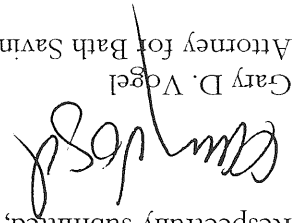 Respectfully submitted,
Gary D. Vogel
Attorney for Bath Savin